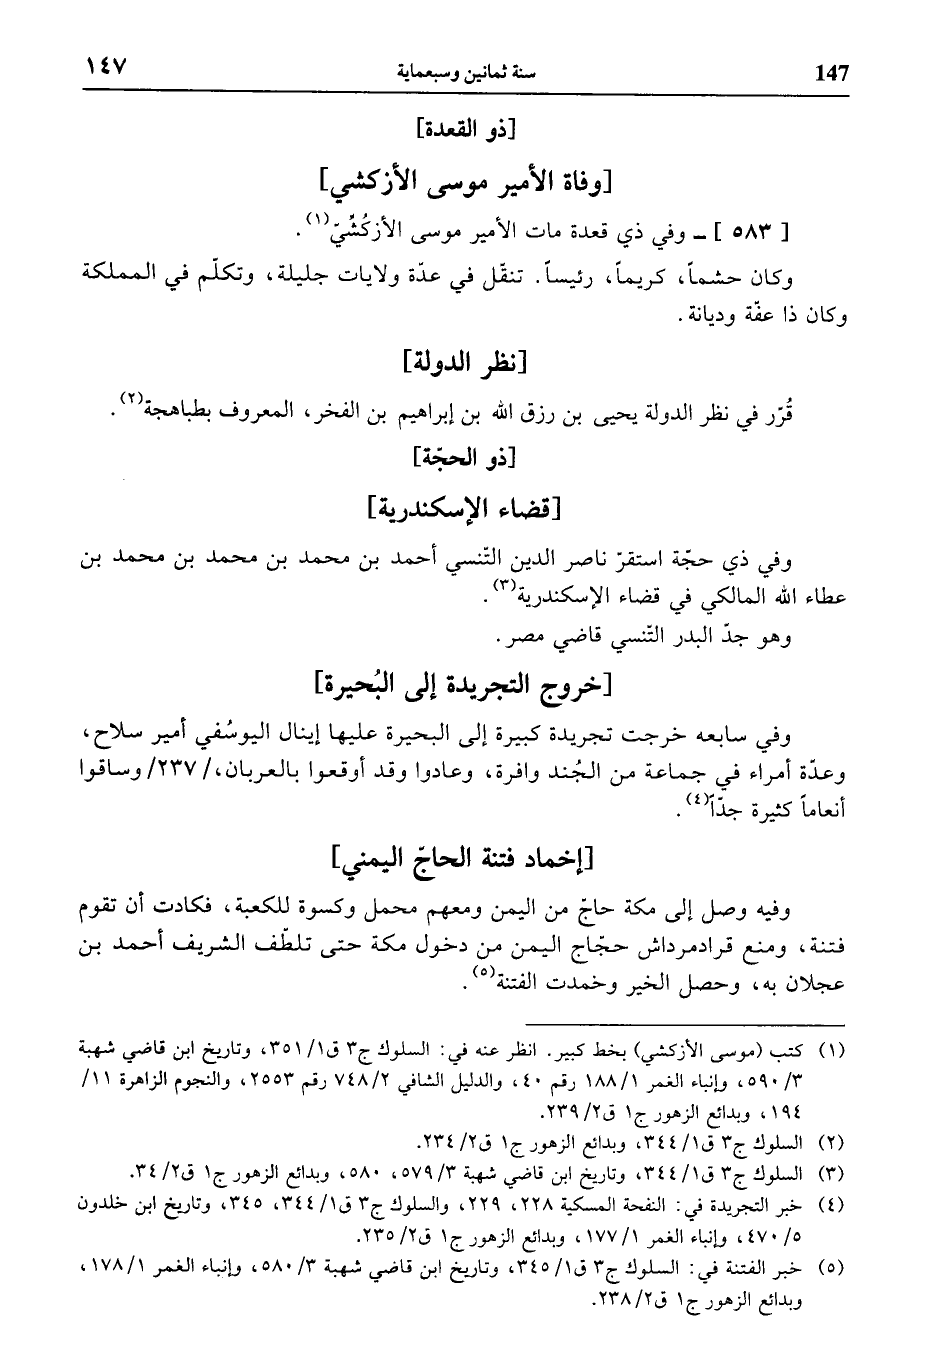 147 سنة ثمانين وسبعماية ١٤٧
[ذو القعدة]
[وفاة الأمير موسى الأزكشي]
[ ٥٨٣ ] ـ وفي ذي قعدة مات الأمير موسى الأزكُشّيّ(١).
وكان حشماً، كريماً، رئيساً. تنقّل في عدّة ولايات جليلة، وتكلّم في المملكة
وكان ذا عفّة وديانة.
[نظر الدولة]
قُرّر في نظر الدولة يحيى بن رزق الله بن إبراهيم بن الفخر، المعروف بطباهجة(٢).
[ذو الحجّة]
[قضاء الإسكندرية]
وفي ذي حجّة استقرّ ناصر الدين التّنسي أحمد بن محمد بن محمد بن محمد بن
عطاء الله المالكي في قضاء الإسكندرية(٣).
وهو جدّ البدر التّنسي قاضي مصر.
[خروج التجريدة إلى البُحيرة]
وفي سابعه خرجت تجريدة كبيرة إلى البحيرة عليها إينال اليوسُفي أمير سلاح،
وعدّة أمراء في جماعة من الجُند وافرة، وعادوا وقد أوقعوا بالعربان،/ ٢٣٧/ وساقوا
أنعاماً كثيرة جدّاً(٤).
[إخماد فتنة الحاجّ اليمني]
وفيه وصل إلى مكة حاجّ من اليمن ومعهم محمل وكسوة للكعبة، فكادت أن تقوم
فتنة، ومنع قرادمرداش حجّاج اليمن من دخول مكة حتى تلطّف الشريف أحمد بن
عجلان به، وحصل الخير وخمدت الفتنة(٥).
(١) كتب (موسى الأزكشي) بخط كبير. انظر عنه في: السلوك ج٣ ق١/ ٣٥١، وتاريخ ابن قاضي شهبة
٣/ ٥٩٠، وإنباء الغمر ١/ ١٨٨ رقم ٤٠، والدليل الشافي ٢/ ٧٤٨ رقم ٢٥٥٣، والنجوم الزاهرة ١١/
١٩٤، وبدائع الزهور ج١ ق٢/ ٢٣٩.
(٢) السلوك ج٣ ق١/ ٣٤٤، وبدائع الزهور ج١ ق٢/ ٢٣٤.
(٣) السلوك ج٣ ق١/ ٣٤٤، وتاريخ ابن قاضي شهبة ٣/ ٥٧٩، ٥٨٠، وبدائع الزهور ج١ ق٢/ ٣٤.
(٤) خبر التجريدة في: النفحة المسكية ٢٢٨، ٢٢٩، والسلوك ج٣ ق١/ ٣٤٤، ٣٤٥، وتاريخ ابن خلدون
٥/ ٤٧٠، وإنباء الغمر ١/ ١٧٧، وبدائع الزهور ج١ ق٢/ ٢٣٥.
(٥) خبر الفتنة في: السلوك ج٣ ق١/ ٣٤٥، وتاريخ ابن قاضي شهبة ٣/ ٥٨٠، وإنباء الغمر ١/ ١٧٨،
وبدائع الزهور ج١ ق٢/ ٢٣٨.